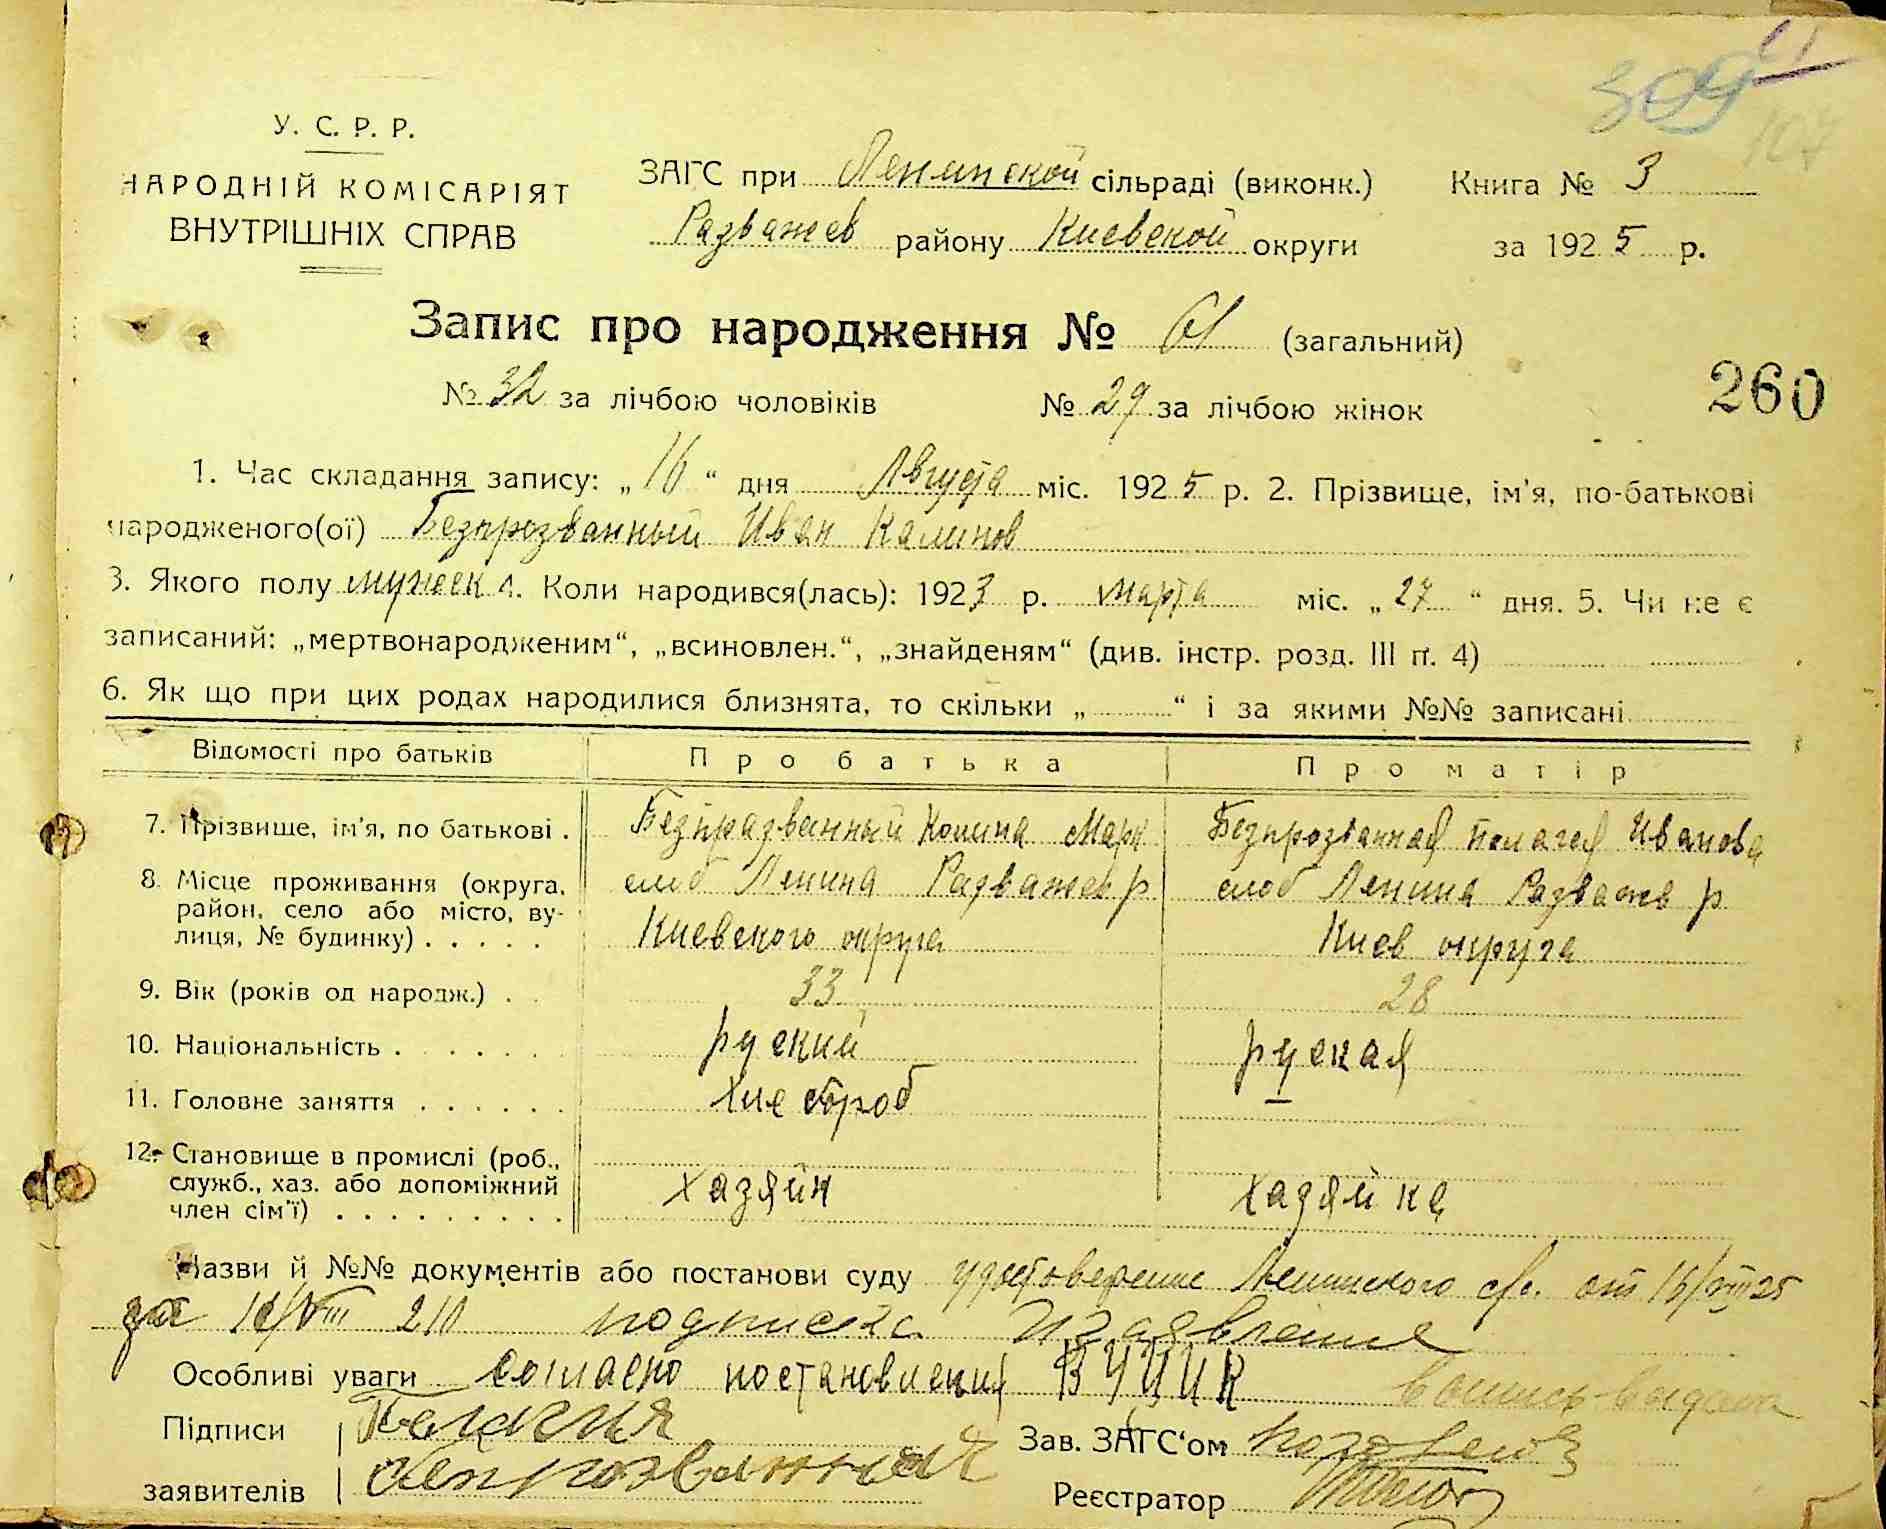 309 61
107
У. С. Р. Р.
НАРОДНІЙ КОМІСАРІЯТ
ВНУТРІШНІХ СПРАВ
ЗАГС при Ленинской сільраді (виконк.) Книга № 3
Розважев району Киевской округи за 1925 р.
Запис про народження № 61 (загальний)
№ 32 за лічбою чоловіків № 29 за лічбою жінок
260
1. Час складання запису: „16“ дня Августа міс. 1925 р. 2. Прізвище, ім'я, по-батькові
народженого(ої) Безпрозванный Иван Калинов
3. Якого полу мужеск 4. Коли народився(лась): 1923 р. марта міс. „27“ дня. 5. Чи не є
записаний: „мертвонародженим“, „всиновлен.“, „знайденям“ (див. інстр. розд. III п. 4)
6. Як що при цих родах народилися близнята, то скільки „ “ і за якими №№ записані
Відомості про батьків Про батька Про матір
7. Прізвище, ім'я, по батькові . Безпразванный Колина Марк Безпрозванная Пелагея Иванова
8. Місце проживання (округа, район, село або місто, ву-лиця, № будинку) . . . . . слоб Ленина Разважев р Киевского округа слоб Ленина Разважев р Киев округа
9. Вік (років од народж.) . . 33 28
10. Національність . . . . . . руский руская
11. Головне заняття . . . . . . хлебороб
12. Становище в промислі (роб., служб., хаз. або допоміжний член сім'ї) . . . . . . . . . хазяйн хазяйка
Назви й №№ документів або постанови суду удостоверение Ленинского с/с. от 16/VIII 25
за 16/VIII 210 подписка и заявление
Особливі уваги согласно постановления ВУЦИК
Підписи Пелагия Зав. ЗАГС'ом
заявителів Безпрозванная Реєстратор